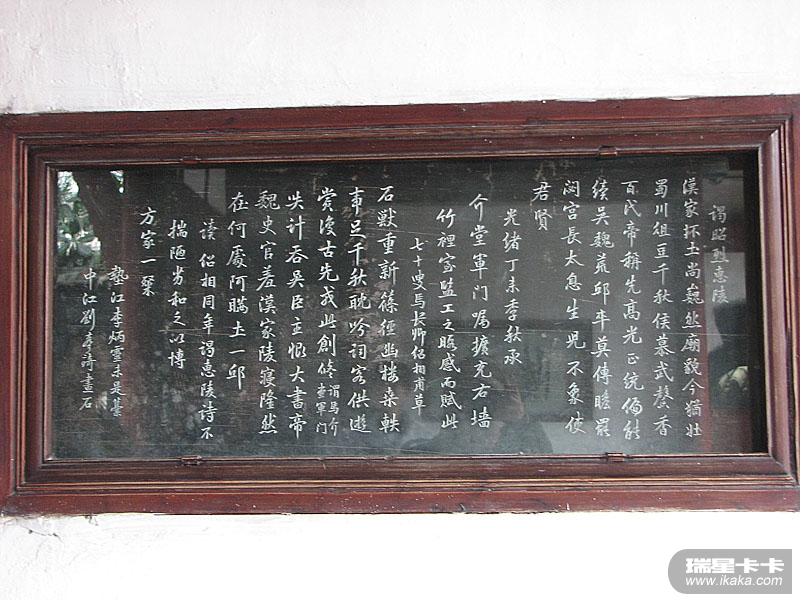 謁昭烈惠陵
漢家抔土尚巍然廟貌今猶壯
蜀川俎豆千秋侯慕武馨香
百代帝稱先高光正統偏能
續吳魏荒邱卒莫傳瞻罷
閟宮長太息生兒不象使
君賢
光緒丁未季秋承
介堂軍门囑擴充右墙
竹裡室監工之暇感而賦此
七十叟馬长卿紹相甫草
石獸重新篠徑幽樓桑軼
事足千秋耽吟詞客供遊
賞復古先成此創修謂馬介堂軍门
失計吞吳臣主恨大書帝
魏史官羞漢家陵寢隆然
在何處阿瞞土一邱
读紹相同年謁惠陵詩不
揣陋劣和之以博
方家一粲
墊江李炳靈未是藁
中江劉畫石
瑞星卡卡
www.ikaka.com